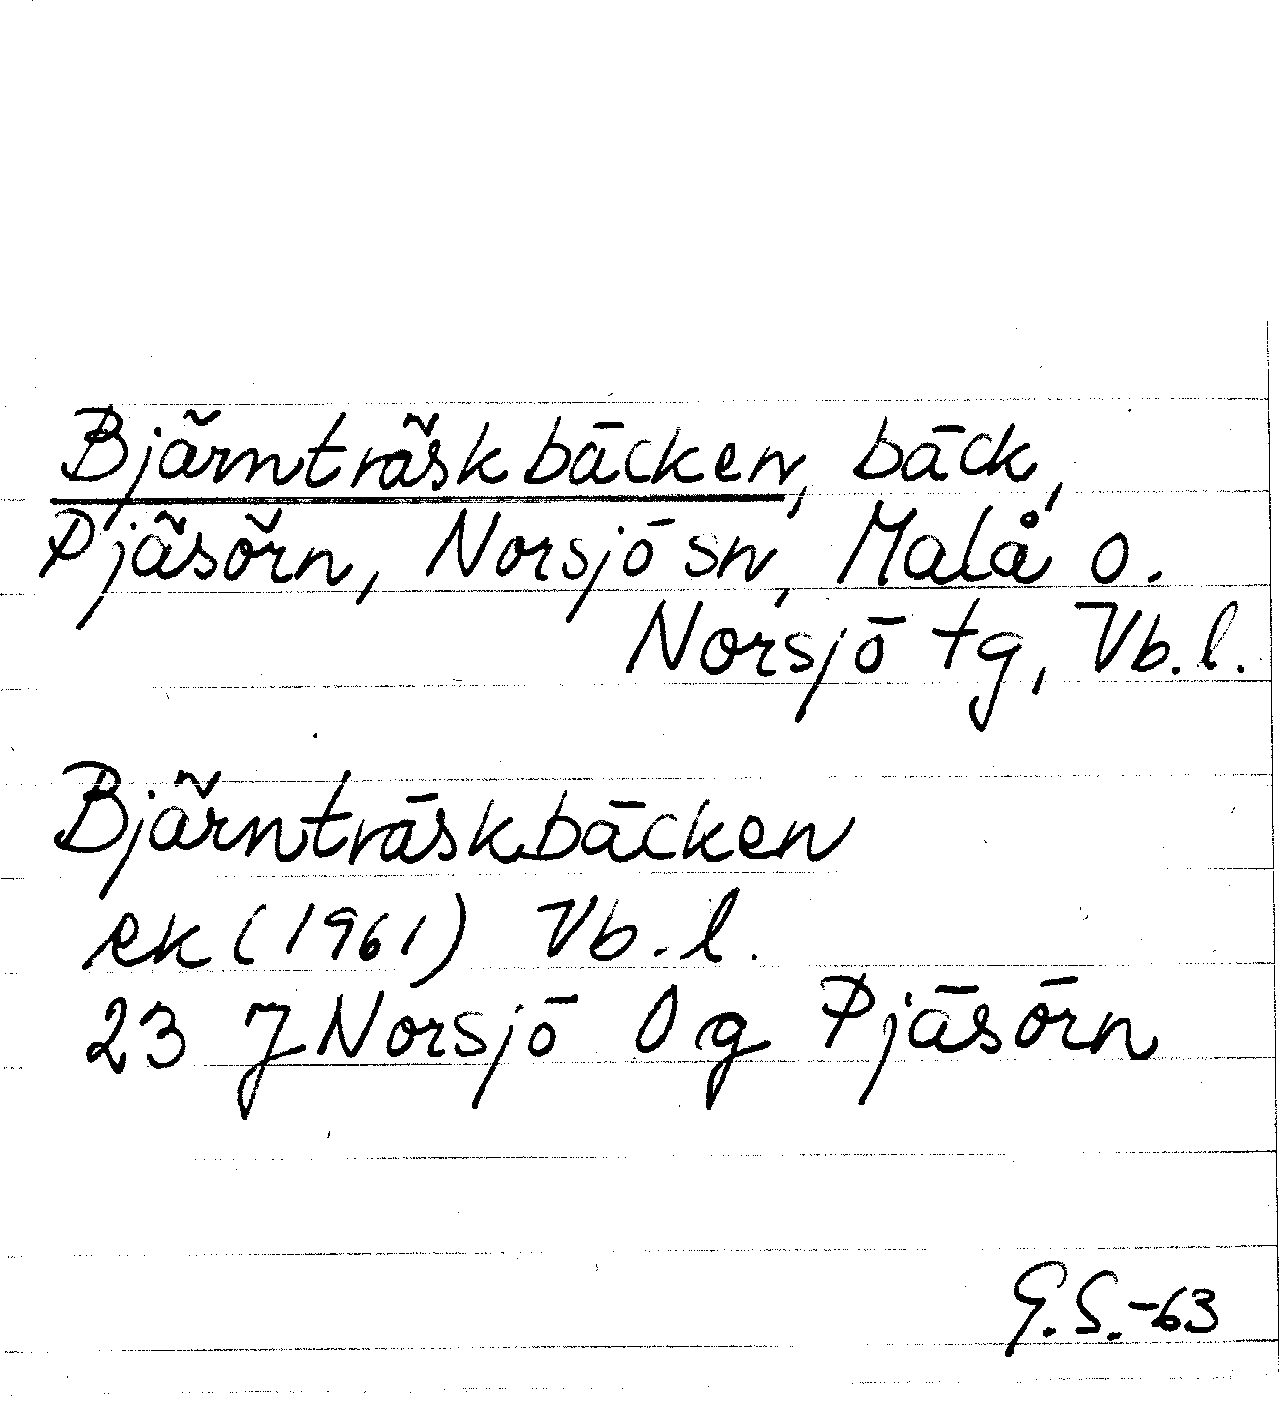 Bjärnträskbäcken, bäck,
Pjäsörn, Norsjö sn, Malå o.
Norsjö tg, Vb. l.
Bjärnträskbäcken
ek (1961) Vb. l.
23 J Norsjö 0 g Pjäsörn
G. S. -63